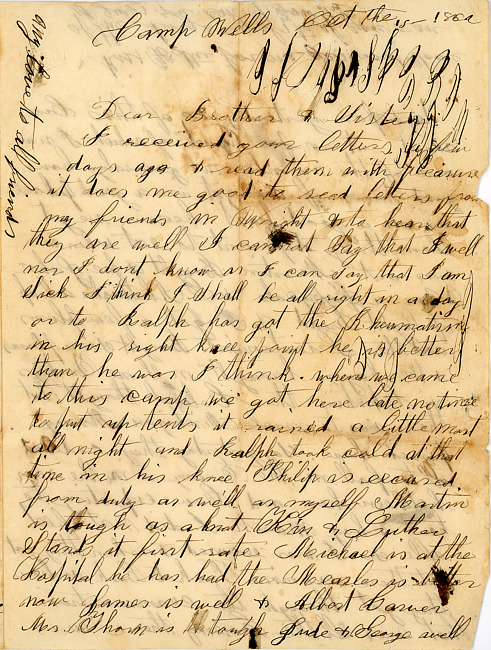 Camp Wells Oct the 15 1862
Dear Brother & Sister
I received your letters a few
days ago & read them with pleasure
it does me good to read letters from
my friends in Wright & to hear that
they are well I cannot Say that I well
nor I dont know as I can Say that I am
Sick I think I Shall be all right in a day
or to Ralph has got the Rheumatism
in his right knee joint he is better
than he was I think. when we came
to this camp we got here late no time
to put up tents it rained a little most
all night and Ralph took cold at that
time in his knee Philip is excused
from duty as well as myself Martin
is tough as a nut & Luther
Stands it first rate Michael is at the
Hospital he has had the Measles is better
now James is well & Albert Carver
Mrs Thorn is tough Jude & George well
my love to all friends